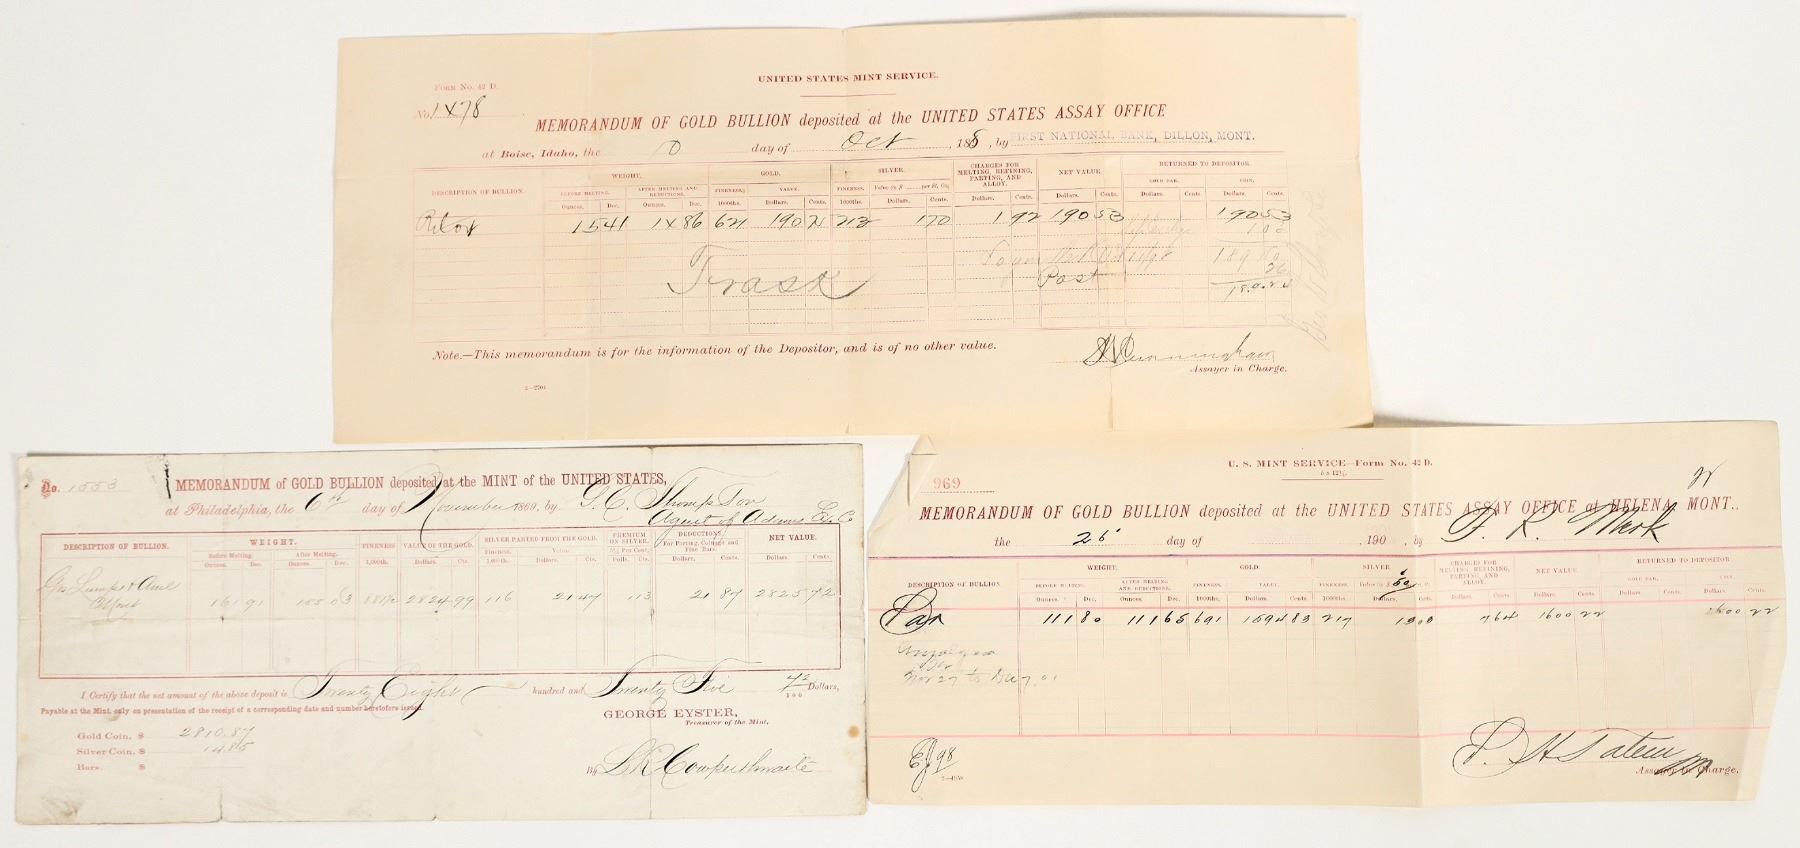 UNITED STATES MINT SERVICE.
FORM NO. 42 D.
No.
MEMORANDUM OF GOLD BULLION deposited at the UNITED STATES ASSAY OFFICE
at Boise, Idaho, the 10 day of Oct , 188 , by FIRST NATIONAL BANK, DILLON, MONT.
DESCRIPTION OF BULLION. WEIGHT. GOLD. SILVER. CHARGES FOR MELTING, REFINING, PARTING, AND ALLOY. NET VALUE. RETURNED TO DEPOSITOR.
BEFORE MELTING. AFTER MELTING AND REDUCTIONS. FINENESS. VALUE. FINENESS. Value @ $ per St. Oz. GOLD BAR. COIN.
Ounces. Dec. Ounces. Dec. 1000ths. Dollars. Cents. 1000ths. Dollars. Cents. Dollars. Cents. Dollars. Cents. Dollars. Cents. Dollars. Cents.
Retort 1541 1 92 190 53 190 53
Trask
Post
Note.—This memorandum is for the information of the Depositor, and is of no other value.
Cunningham
Assayer in Charge.
2—2701
No. 1553
MEMORANDUM OF GOLD BULLION deposited at the MINT of the UNITED STATES,
at Philadelphia, the 6th day of November 1869, by S. C. Thompson
Agent of Adams Ex Co
DESCRIPTION OF BULLION. WEIGHT. FINENESS VALUE OF THE GOLD. SILVER PARTED FROM THE GOLD. PREMIUM ON SILVER DEDUCTIONS For Parting, Coinage and Fine Bars. NET VALUE.
Before Melting. After Melting. Fineness. Value
Ounces. Dec. Ounces. Dec. 1,000th. Dollars. Cts. 1,000ths. Dollars. Cts. Dolls. Cts. Dollars. Cents. Dollars. Cents.
161 91 2824 99 116 21 47 1 13 21 87 2825 72
I Certify that the net amount of the above deposit is Twenty Eight hundred and Twenty Five 72/100 Dollars,
Payable at the Mint, only on presentation of the receipt of a corresponding date and number heretofore issued.
GEORGE EYSTER,
Treasurer of the Mint,
Gold Coin. $ 2810.87
Silver Coin. $ 14.85
Bars. $
By Cowperthwaite
U. S. MINT SERVICE—Form No. 42 D.
969
MEMORANDUM OF GOLD BULLION deposited at the UNITED STATES ASSAY OFFICE at HELENA, MONT.,
the 26 day of , 190 , by F. R. Merk
DESCRIPTION OF BULLION. WEIGHT. GOLD. SILVER. CHARGES FOR MELTING, REFINING, PARTING, AND ALLOY. NET VALUE. RETURNED TO DEPOSITOR
BEFORE MELTING. AFTER MELTING AND REDUCTIONS. FINENESS. VALUE. FINENESS. Value @ $ .50 GOLD BAR. COIN.
Ounces. Dec. Ounces. Dec. 1000ths. Dollars. Cents. 1000ths. Dollars. Cts. Dollars. Cents. Dollars. Cents. Dollars. Cents. Dollars. Cents.
Bar 111 80 111 65 691 1594 83 217 13 03 7 64 1600 22 1600 22
Nov 27 to Dec 7. 01
2—4958
Assayer in Charge.